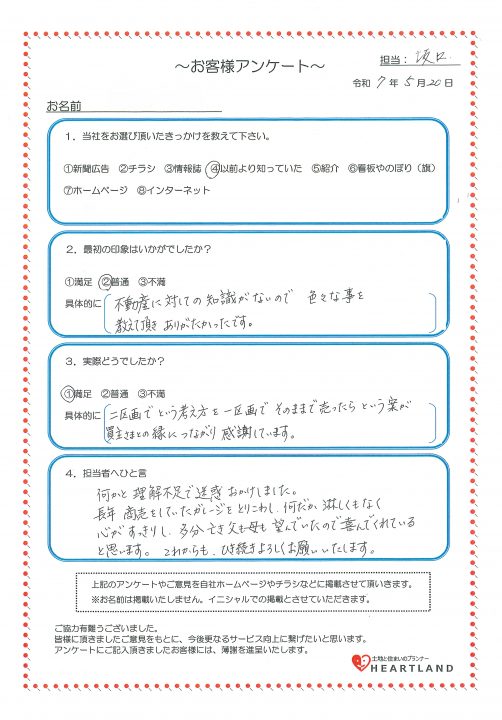 ～お客様アンケート～
担当：坂口
令和 7 年 5 月 20 日
お名前
1．当社をお選び頂いたきっかけを教えて下さい。
①新聞広告 ②チラシ ③情報誌 ④以前より知っていた ⑤紹介 ⑥看板やのぼり（旗）
⑦ホームページ ⑧インターネット
2．最初の印象はいかがでしたか？
①満足 ②普通 ③不満
具体的に 不動産に対しての知識がないので 色々な事を
教えて頂き ありがたかったです。
3．実際どうでしたか？
①満足 ②普通 ③不満
具体的に 二区画でという考え方を一区画で そのままで売ったら という案が
買主さまとの縁につながり 感謝しています。
4．担当者へひと言
何かと 理解不足で迷惑 おかけしました。
長年 商売をしていたガレージをとりこわし、何だか 淋しくもなく
心がすっきりし、多分 亡き父も母も 望んでいたので喜んでくれている
と思います。 これからも、ひき続きよろしくお願いいたします。
上記のアンケートやご意見を自社ホームページやチラシなどに掲載させて頂いきます。
※お名前は掲載いたしません。イニシャルでの掲載とさせていただきます。
ご協力有難うございました。
皆様に頂きましたご意見をもとに、今後更なるサービス向上に繋げたいと思います。
アンケートにご記入頂きましたお客様には、薄謝を進呈いたします。
土地と住まいのプランナー
HEARTLAND